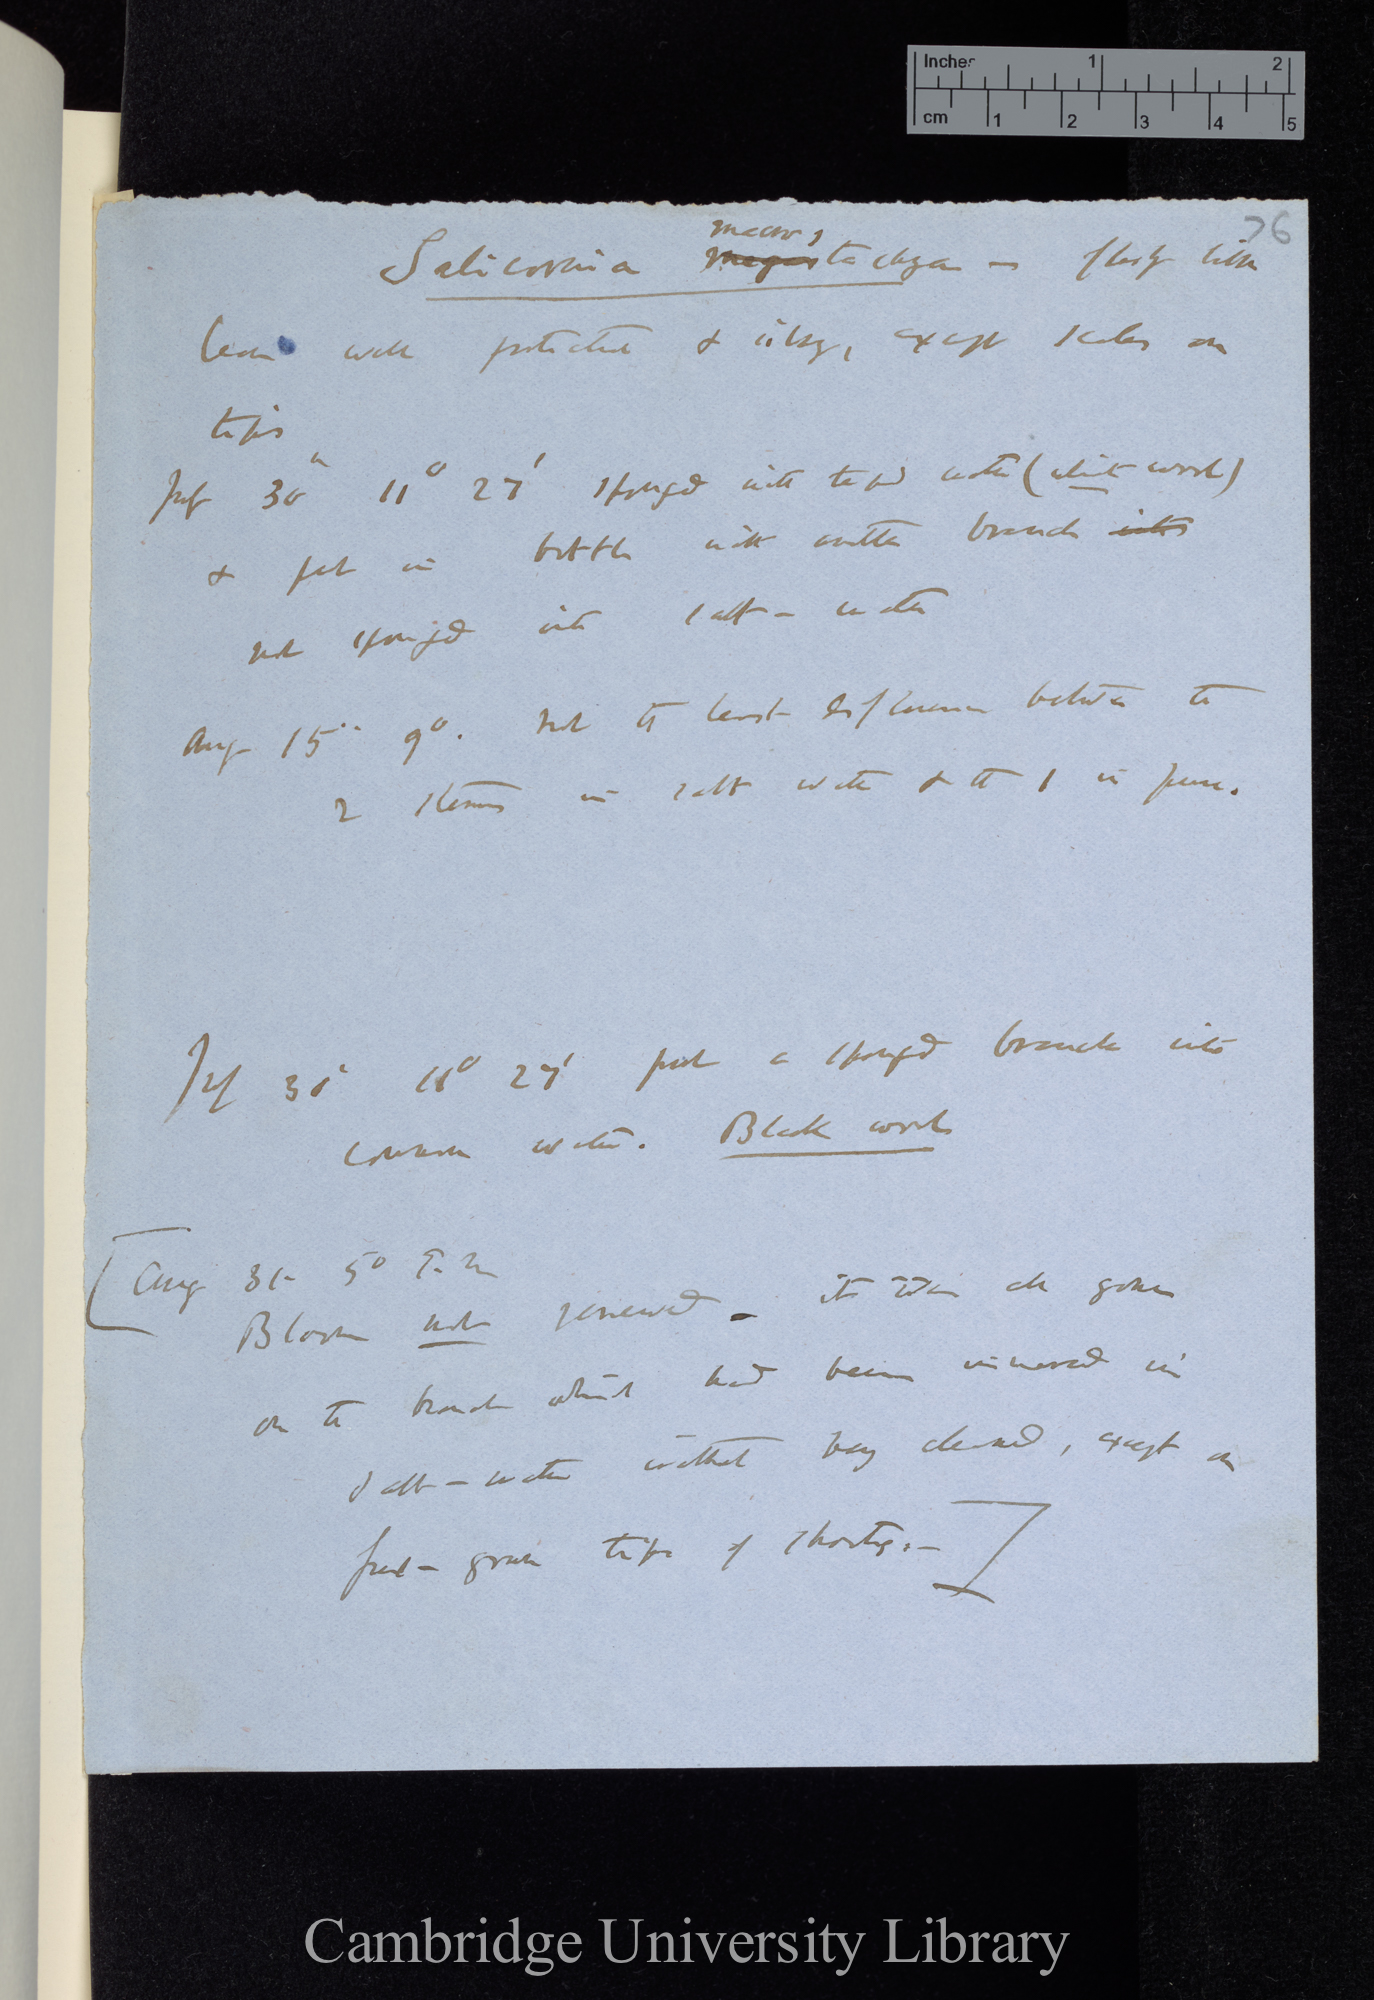 Inches 1 2
cm 1 2 3 4 5
76
macros
Salicornia megastachya — fleshy little
leaves well protected & silvery, except scales on
tips
July 30th 11° 27' sponged with tepid water (white wool)
& put in bottle with another branch into
not sponged into salt-water
Aug 15th 9°. Not the least difference between the
2 stems in salt water & the 1 in pure.
July 30th 11° 27' put a sponged branch into
common water. Black wool
[Aug 31 5° P. m
Bloom not renewed — it was all gone
on the branch which had been immersed in
salt-water without being cleaned, except on
fresh-grown tips of shoots.—]
Cambridge University Library